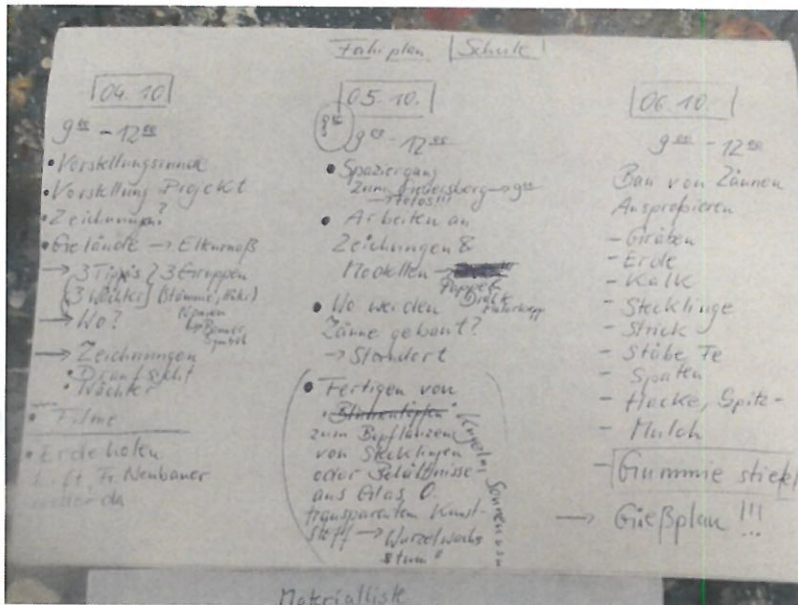 Fahrplan Schule
04.10
9⁰⁰ - 12⁰⁰
• Vorstellungsrunde
• Vorstellung Projekt
• Zeichnungen?
• Gelände → Ellenmaß
→ 3 Tippis } 3 Gruppen
(3 Wächter (Stämme,
Figuren
Banner,
Symbol
→ Wo?
→ Zeichnungen
• Draufsicht
• Wächter
• Filme
• Erde holen
Fr. Neubauer
05.10.
9⁰⁰ - 12⁰⁰
• Spaziergang
zum → 9⁰⁰
→ Fotos!!!
• Arbeiten an
Zeichnungen &
Modellen →
Pappe
Draht
• Wo werden
Zäune gebaut?
→ Standort
• Fertigen von
"Blumentöpfen" Kugeln, Sonnen usw
zum Bepflanzen
von Stecklingen
oder Behältnisse
aus Glas o.
transparentem Kunst-
stoff → Wurzelwachs
stum!
06.10.
9⁰⁰ - 12⁰⁰
Bau von Zäunen
Ausprobieren
- Gräben
- Erde
- Kalk
- Stecklinge
- Strick
- Stäbe Fe
- Spaten
- Hacke, Spitz-
- Mulch
- Gummie stiefel
→ Gießplan !!!
Materialliste